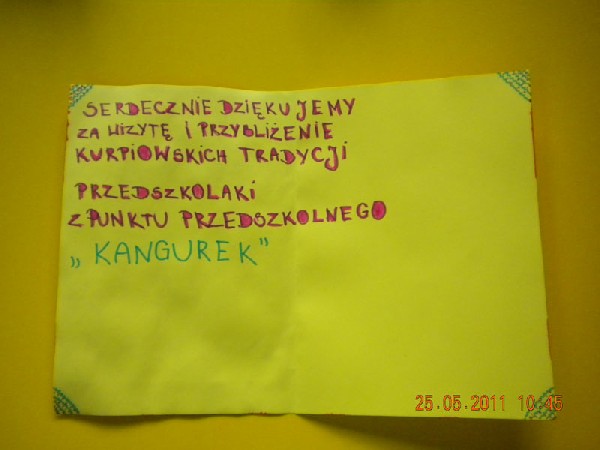 SERDECZNIE DZIĘKUJEMY
ZA WIZYTĘ I PRZYBLIŻENIE
KURPIOWSKICH TRADYCJI
PRZEDSZKOLAKI
Z PUNKTU PRZEDSZKOLNEGO
„KANGUREK”
25.05.2011 10:45